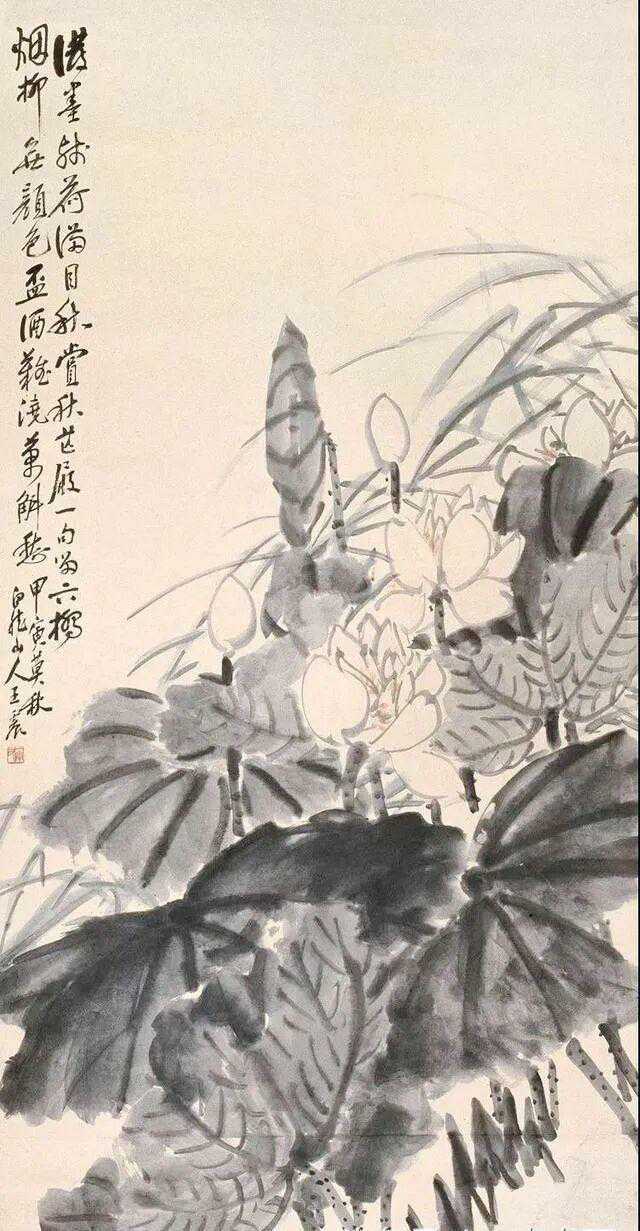 潑墨殘荷滿目秋賞秋芒屐一句留六橋
烟柳無顏色盃酒難澆萬斛愁
甲寅莫秋
白龍山人王震